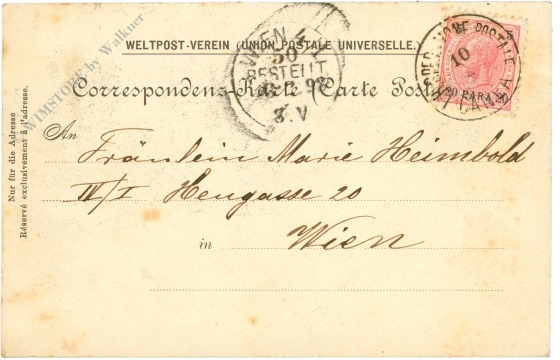 WELTPOST-VEREIN (UNION POSTALE UNIVERSELLE.)
Correspondenz-Karte Carte Postale
WIEN 4
50
BESTELLT
98
8.V
10
CANEA
20 PARA 20
WIMSTORY by Walkner
Nur für die Adresse
Réservé exclusivement à l'adresse.
An Fräulein Marie Heimbold
IV/I Heugasse 20
in Wien